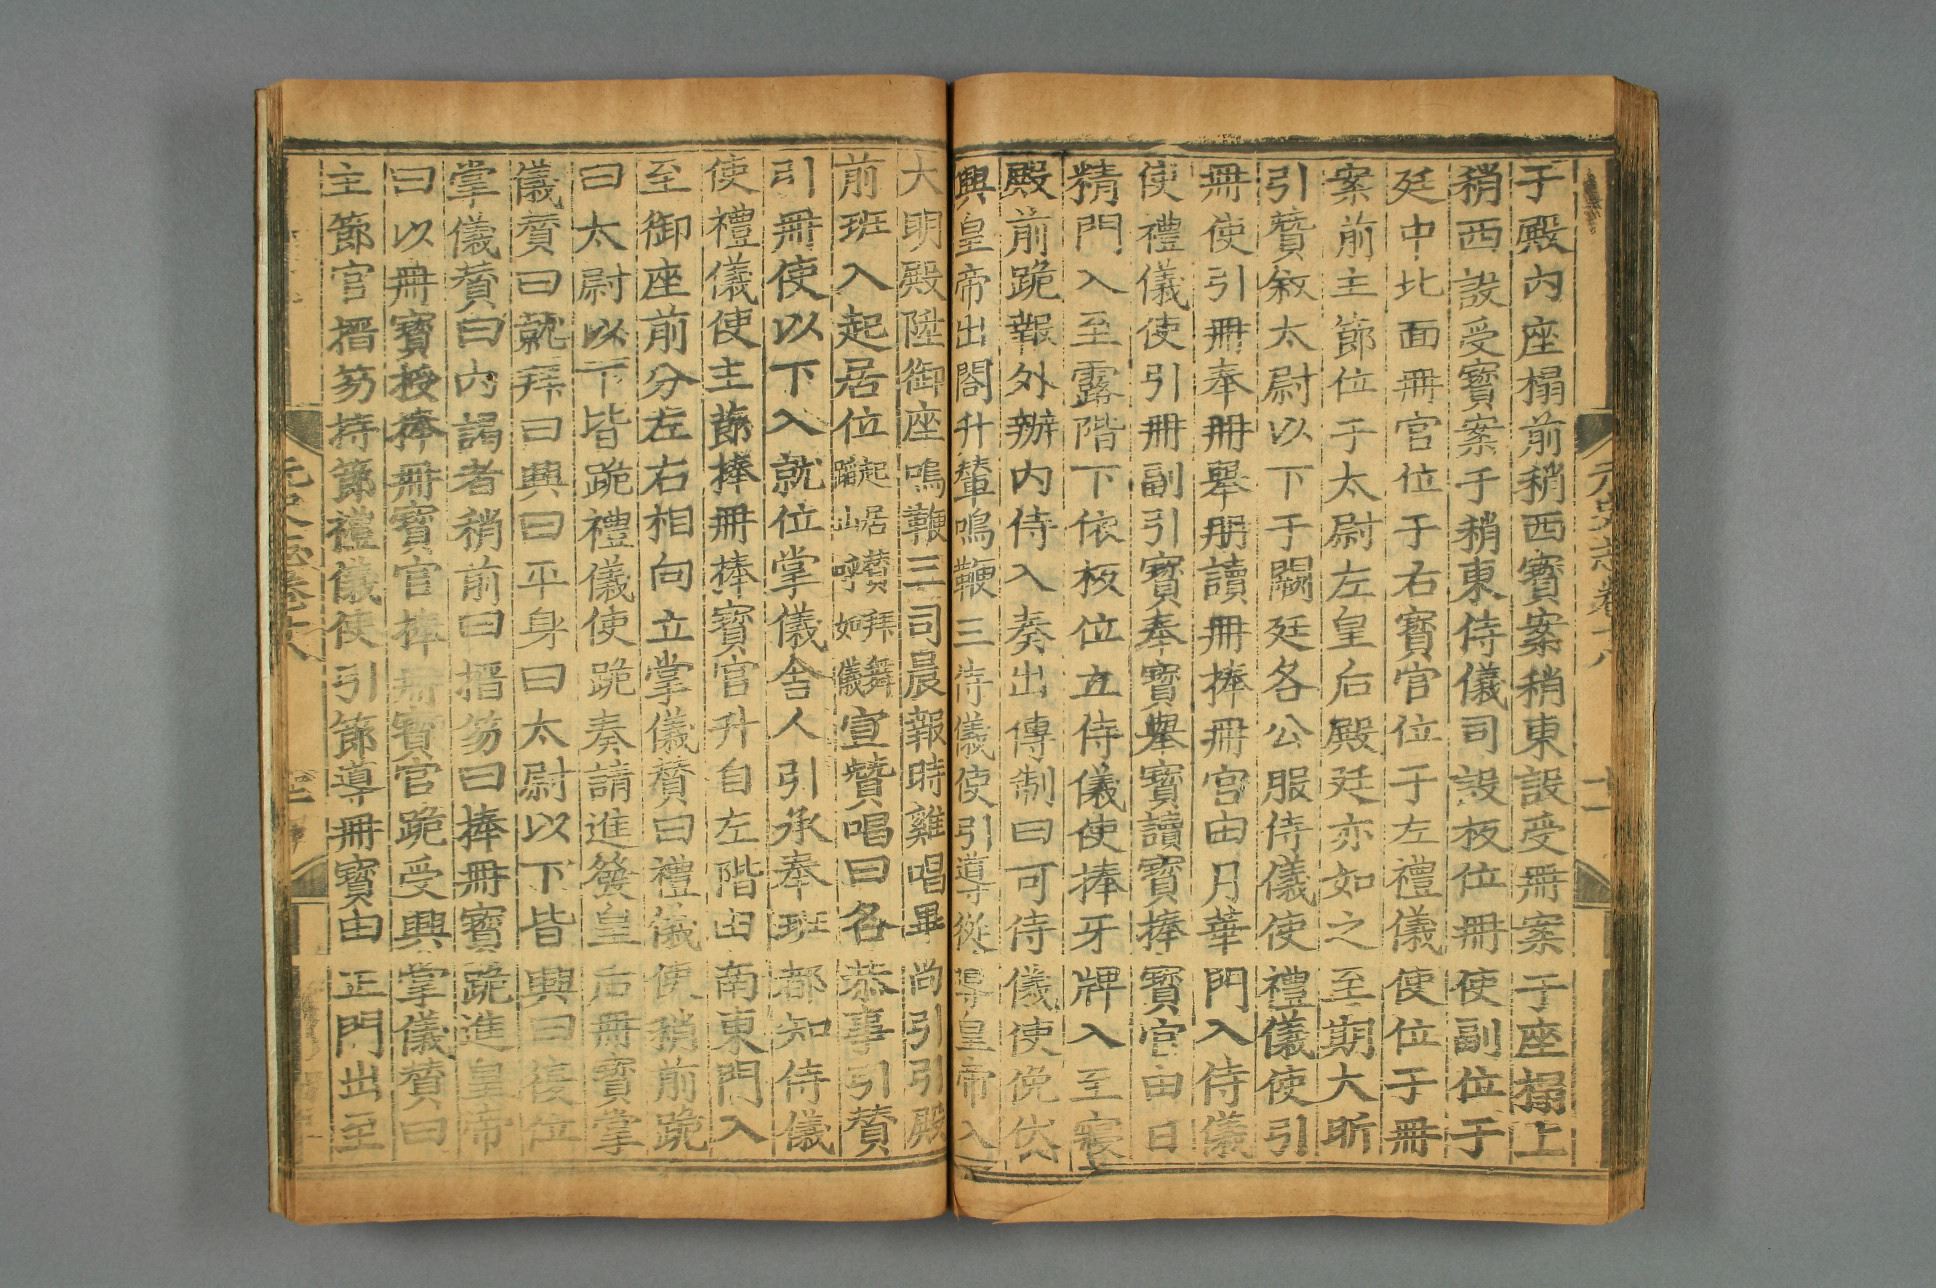 于殿内座榻前稍西寶案稍東設受冊案于座榻上
稍西設受寶案于稍東侍儀司設板位冊使副位于
廷中北面冊官位于右寶官位于左禮儀使位于冊
案前主節位于太尉左皇后殿廷亦如之至期大昕
引贊敘太尉以下于闕廷各公服侍儀使禮儀使引
冊使引冊奉冊舉冊讀冊捧冊官由月華門入侍儀
使禮儀使引冊副引寶奉寶舉寶讀寶捧寶官由日
精門入至露階下依板位立侍儀使捧牙牌入至寢
殿前跪報外辦内侍入奏出傳制曰可侍儀使俛伏
興皇帝出閤升輦鳴鞭三侍儀使引導從導皇帝入
大明殿陞御座鳴鞭三司晨報時雞唱畢尚引引殿
前班入起居位起居贊拜舞蹈山呼如儀宣贊唱曰各恭事引贊
引冊使以下入就位掌儀舍人引承奉班都知侍儀
使禮儀使主節捧冊捧寶官升自左階由南東門入
至御座前分左右相向立掌儀贊曰禮儀使稍前跪
曰太尉以下皆跪禮儀使跪奏請進發皇后冊寶掌
儀贊曰就拜曰興曰平身曰太尉以下皆興曰復位
掌儀贊曰内謁者稍前曰搢笏曰捧冊寶跪進皇帝
曰以冊寶授捧冊寶官捧冊寶官跪受興掌儀贊曰
主節官搢笏持節禮儀使引節導冊寶由正門出至
元史志卷十八
十一